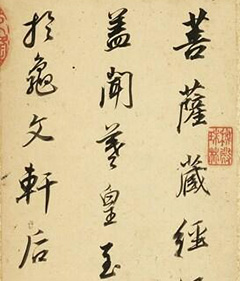 菩薩藏經
蓋聞羲皇至
於龜文軒后